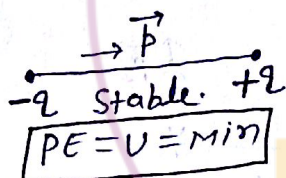 → p⃗
-q stable. +q
PE = U = Min